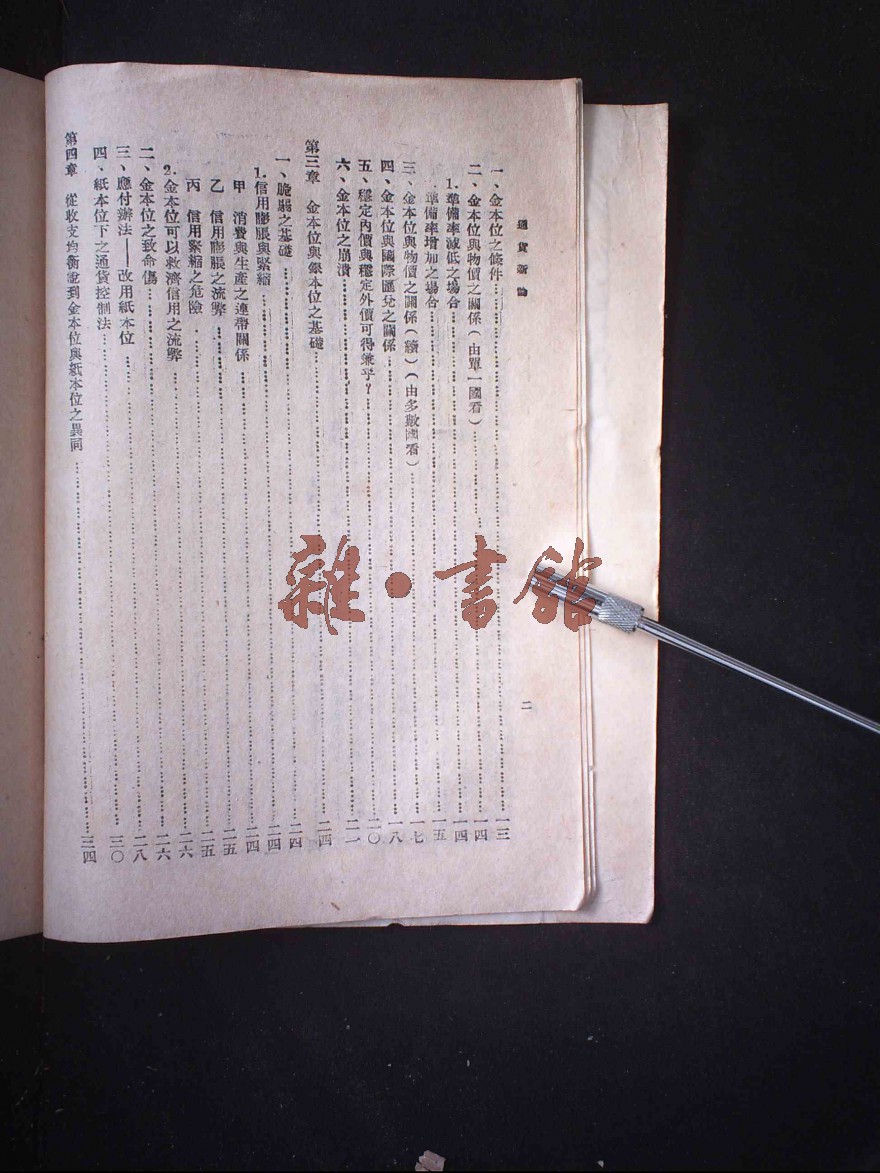 通貨新論
二
一、金本位之條件……一三
二、金本位與物價之關係（由單一國看）……一四
1.準備率減低之場合……一四
準備率增加之場合……一五
三、金本位與物價之關係（續）（由多數國看）……一七
四、金本位與國際匯兌之關係……一八
五、穩定內價與穩定外價可得兼乎？……二〇
六、金本位之崩潰……二一
第三章　金本位與銀本位之基礎……二四
一、脆弱之基礎……二四
1.信用膨脹與緊縮……二四
甲　消費與生產之連帶關係……二四
乙　信用膨脹之流弊……二五
丙　信用緊縮之危險……二五
2.金本位可以救濟信用之流弊……二六
二、金本位之致命傷……二六
三、應付辦法——改用紙本位……二八
四、紙本位下之通貨控制法……三〇
第四章　從收支均衡說到金本位與紙本位之異同……三四
雜·書館